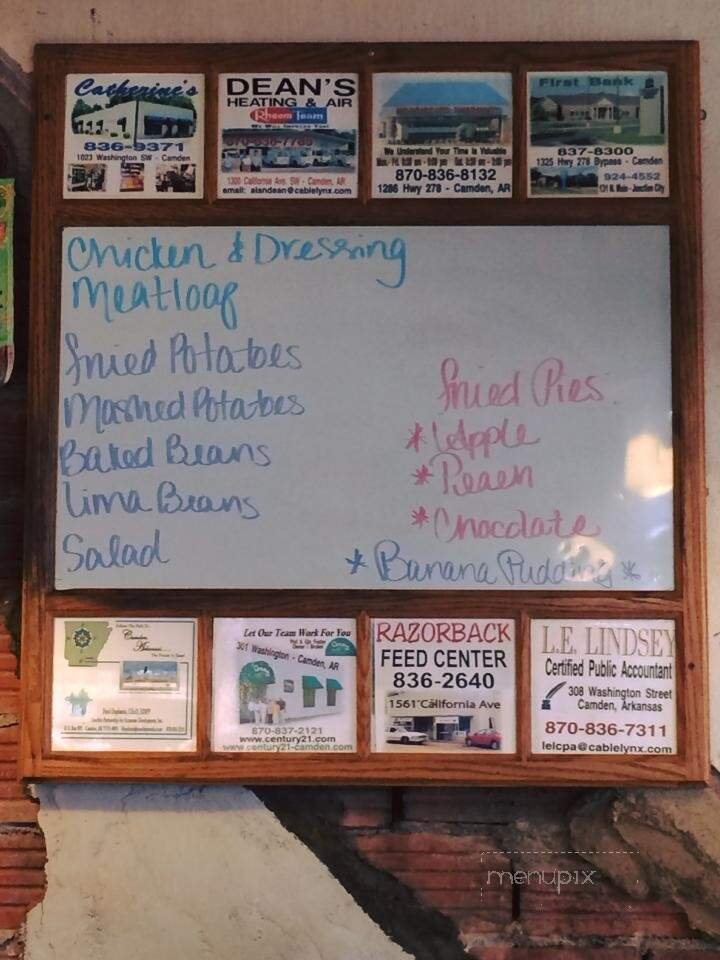 Catherine's
836-9371
1023 Washington SW - Camden
DEAN'S
HEATING & AIR
Rheem Team
870-836-7785
1300 California Ave. SW - Camden, AR
email: alandean@cablelynx.com
We Understand Your Time is Valuable
870-836-8132
1286 Hwy 278 - Camden, AR
First Bank
837-8300
1325 Hwy 278 Bypass - Camden
924-4552
131 N. Main - Junction City
Chicken & Dressing
Meatloaf
Fried Potatoes
Mashed Potatoes
Baked Beans
Lima Beans
Salad
Fried Pies
*Apple
*Peach
*Chocolate
*Banana Pudding*
Camden
Arkansas
Let Our Team Work For You
301 Washington - Camden, AR
870-837-2121
www.century21.com
www.century21-camden.com
RAZORBACK
FEED CENTER
836-2640
1561 California Ave
L.E. LINDSEY
Certified Public Accountant
308 Washington Street
Camden, Arkansas
870-836-7311
lelcpa@cablelynx.com
menupix